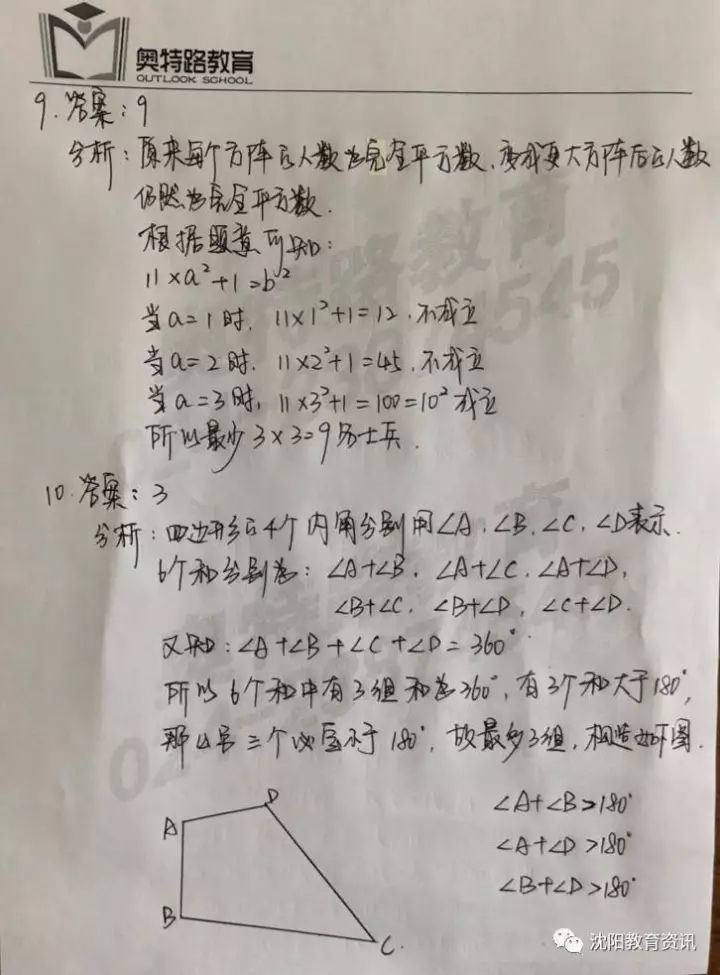 奥特路教育
OUTLOOK SCHOOL
9. 答案：9
分析：原来每个方阵的人数为完全平方数，变成更大方阵后的人数
仍然为完全平方数.
根据题意可知：
11×a²+1=b²
当a=1时，11×1²+1=12，不成立
当a=2时，11×2²+1=45，不成立
当a=3时，11×3²+1=100=10² 成立
所以最少3×3=9名士兵.
10. 答案：3
分析：四边形的4个内角分别用∠A，∠B，∠C，∠D表示.
6个和分别为：∠A+∠B，∠A+∠C，∠A+∠D，
∠B+∠C，∠B+∠D，∠C+∠D.
又知：∠A+∠B+∠C+∠D=360°
所以6个和中有3组和为360°，有3个和大于180°，
那么另三个必定小于180°，故最多3组，构造如下图.
∠A+∠B>180°
∠A+∠D>180°
∠B+∠D>180°
A
D
B
C.
沈阳教育资讯